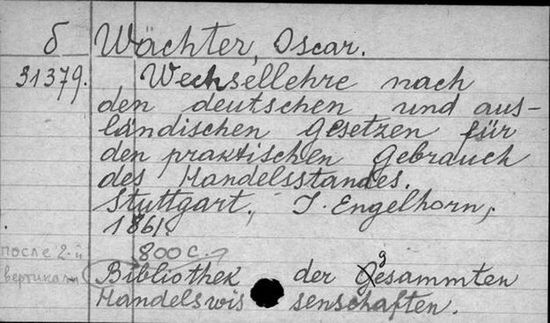 б Wächter, Oscar.
31379. Wechsellehre nach
den deutschen und aus-
ländischen Gesetzen für
den praktischen Gebrauch
des Handelsstandes.
Stuttgart, J. Engelhorn,
1861.
800 с.
после 2-й
вертикали
Bibliothek der gesammten
Handelswissenschaften.